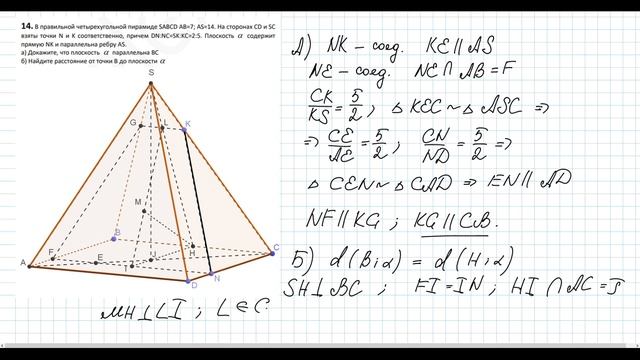 14. В правильной четырехугольной пирамиде SABCD AB=7; AS=14. На сторонах CD и SC
взяты точки N и K соответственно, причем DN:NC=SK:KC=2:5. Плоскость α содержит
прямую NK и параллельна ребру AS.
а) Докажите, что плоскость α параллельна BC
б) Найдите расстояние от точки B до плоскости α
S
G
L
K
M
B
H
C
F
A
E
I
J
D
N
MH⊥LI ; L ∈ C.
А) NK – соед. KE || AS
NE – соед. NE ∩ AB = F
CK/KS = 5/2 ; △ KEC ~ △ ASC ⇒
⇒ CE/AE = 5/2 ; CN/ND = 5/2 ⇒
△ CEN ~ △ CAD ⇒ EN || AD
NF || KG ; KG || CB.
Б) d(B;α) = d(H;α)
SH⊥BC ; FI = IN ; HI ∩ AC = J